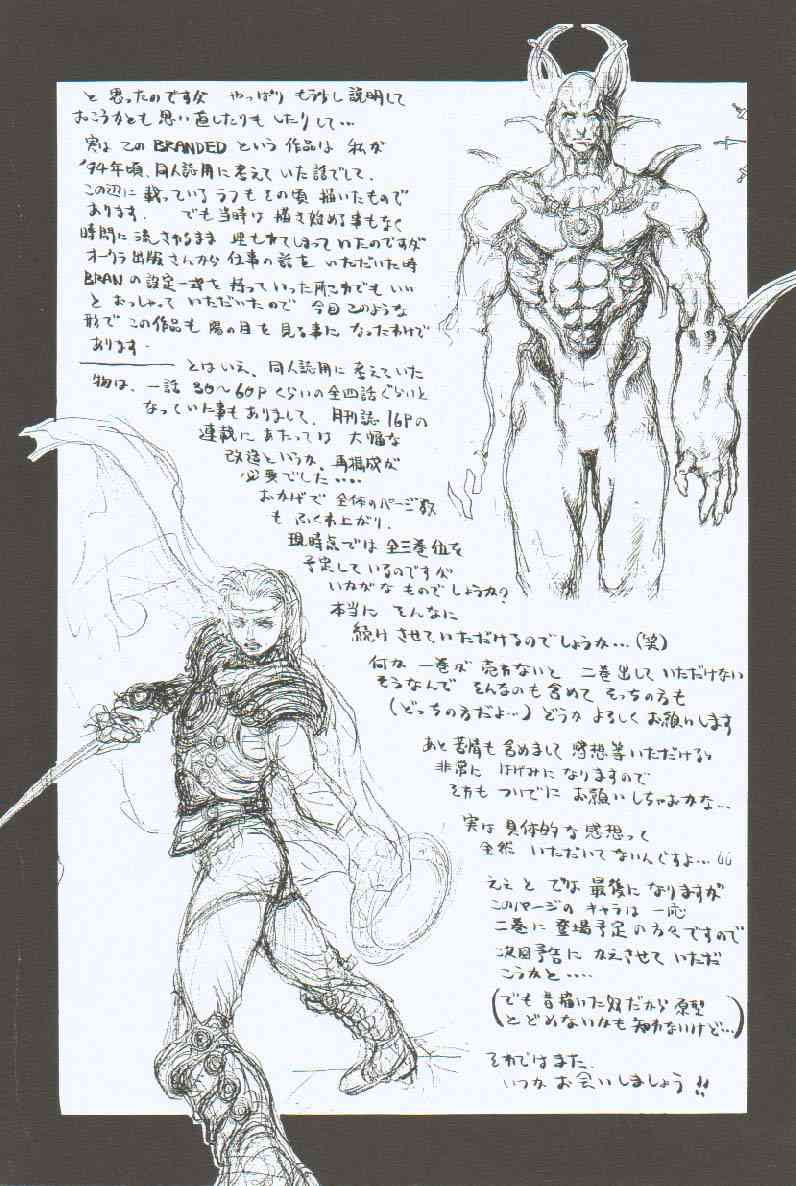 と 思ったのですが やっぱり もう少し説明して
おこうかとも思い直したりもしたりして…
実は この BRANDED という 作品は 私が
'94年頃、同人誌用に考えて いた話でして、
この辺に 載っている ラフも その頃 描いたもので
あります. でも当時は 描き始める事もなく
時間に流されるまま 埋もれてしまって いたのですが
オークラ出版さんから 仕事の話を いただいた時
BRANの設定一式を持っていった所これでもいい
と おっしゃって いただいたので 今回このような
形で この作品も 陽の目を 見る事に なったわけで
あります.
とはいえ、同人誌用に 考えていた
物は、一話 30〜60P くらいの全四話ぐらいと
なっていた事もありまして、月刊誌 16Pの
連載に あたっては 大幅な
改造というか、再構成が
必要でした‥‥
おかげで 全体のページ数
も ふくれ上がり、
現時点では 全三巻位を
予定しているのですが
いかがな ものでしょうか?
本当に そんなに
続けさせていただけるのでしょうか…(笑)
何か 一巻が 売れないと 二巻出して いただけない
そうなんで そんなのも含めて そっちの方も
(どっちの方だよ…)どうか よろしく お願いします
あと苦情も含めまして 感想等いただけると
非常に はげみに なりますので
それも ついでに お願いしちゃおかな…
実は 具体的な感想って
全然 いただいてないんですよ…
ええと では 最後に なりますが
このページの キャラは 一応
二巻に登場予定の方々ですので
次回予告に かえさせて いただ
こうかと‥‥
(でも 昔描いた奴だから 原型
とどめないかも知れないけど…)
それではまた、
いつか お会いしましょう!!